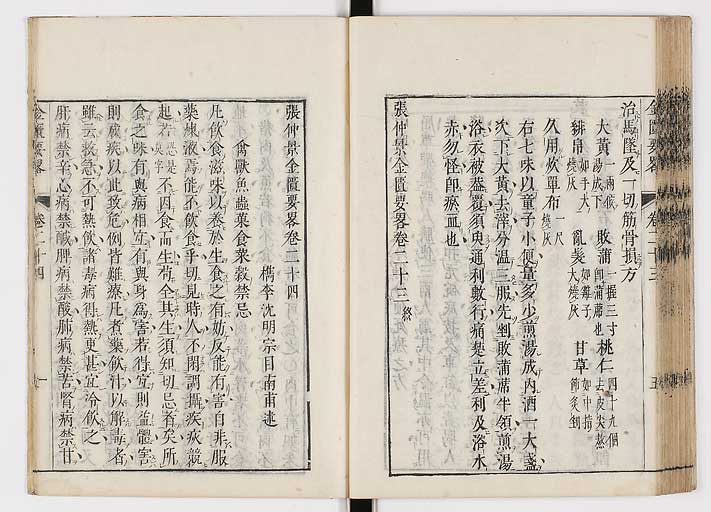 金匱要略 卷二十三
治馬墜及一切筋骨損方
大黃一兩候湯成下敗蒲一握三寸卽蒲蓆也桃仁四十九個去皮尖熬
緋帛如手大燒灰亂髮如雞子大燒灰甘草如中指節炙剉
久用炊單布一尺燒灰
右七味以童子小便量多少煎湯成內酒一大盞
次下大黃去滓分溫三服先剉敗蒲蓆半領煎湯
浴衣被蓋覆須臾通利數行痛楚立差利及浴水
赤勿怪卽瘀血也
張仲景金匱要略卷二十三終
張仲景金匱要略卷二十四
檇李沈明宗目南甫述
禽獸魚蟲菓食菜穀禁忌
凡飲食滋味以養於生食之有妨反能有害自非服
藥煉液焉能不飲食乎切見時人不閑調攝疾疢競
起若是不因食而生苟全其生須知切忌者矣所
食之味有與病相宜有與身為害若得宜則益體害
則成疾以此致危例皆難療凡煮藥飲汁以解毒者
雖云救急不可熱飲諸毒病得熱更甚宜冷飲之
肝病禁辛心病禁鹹脾病禁酸肺病禁苦腎病禁甘
金匱要略 卷二十四 一